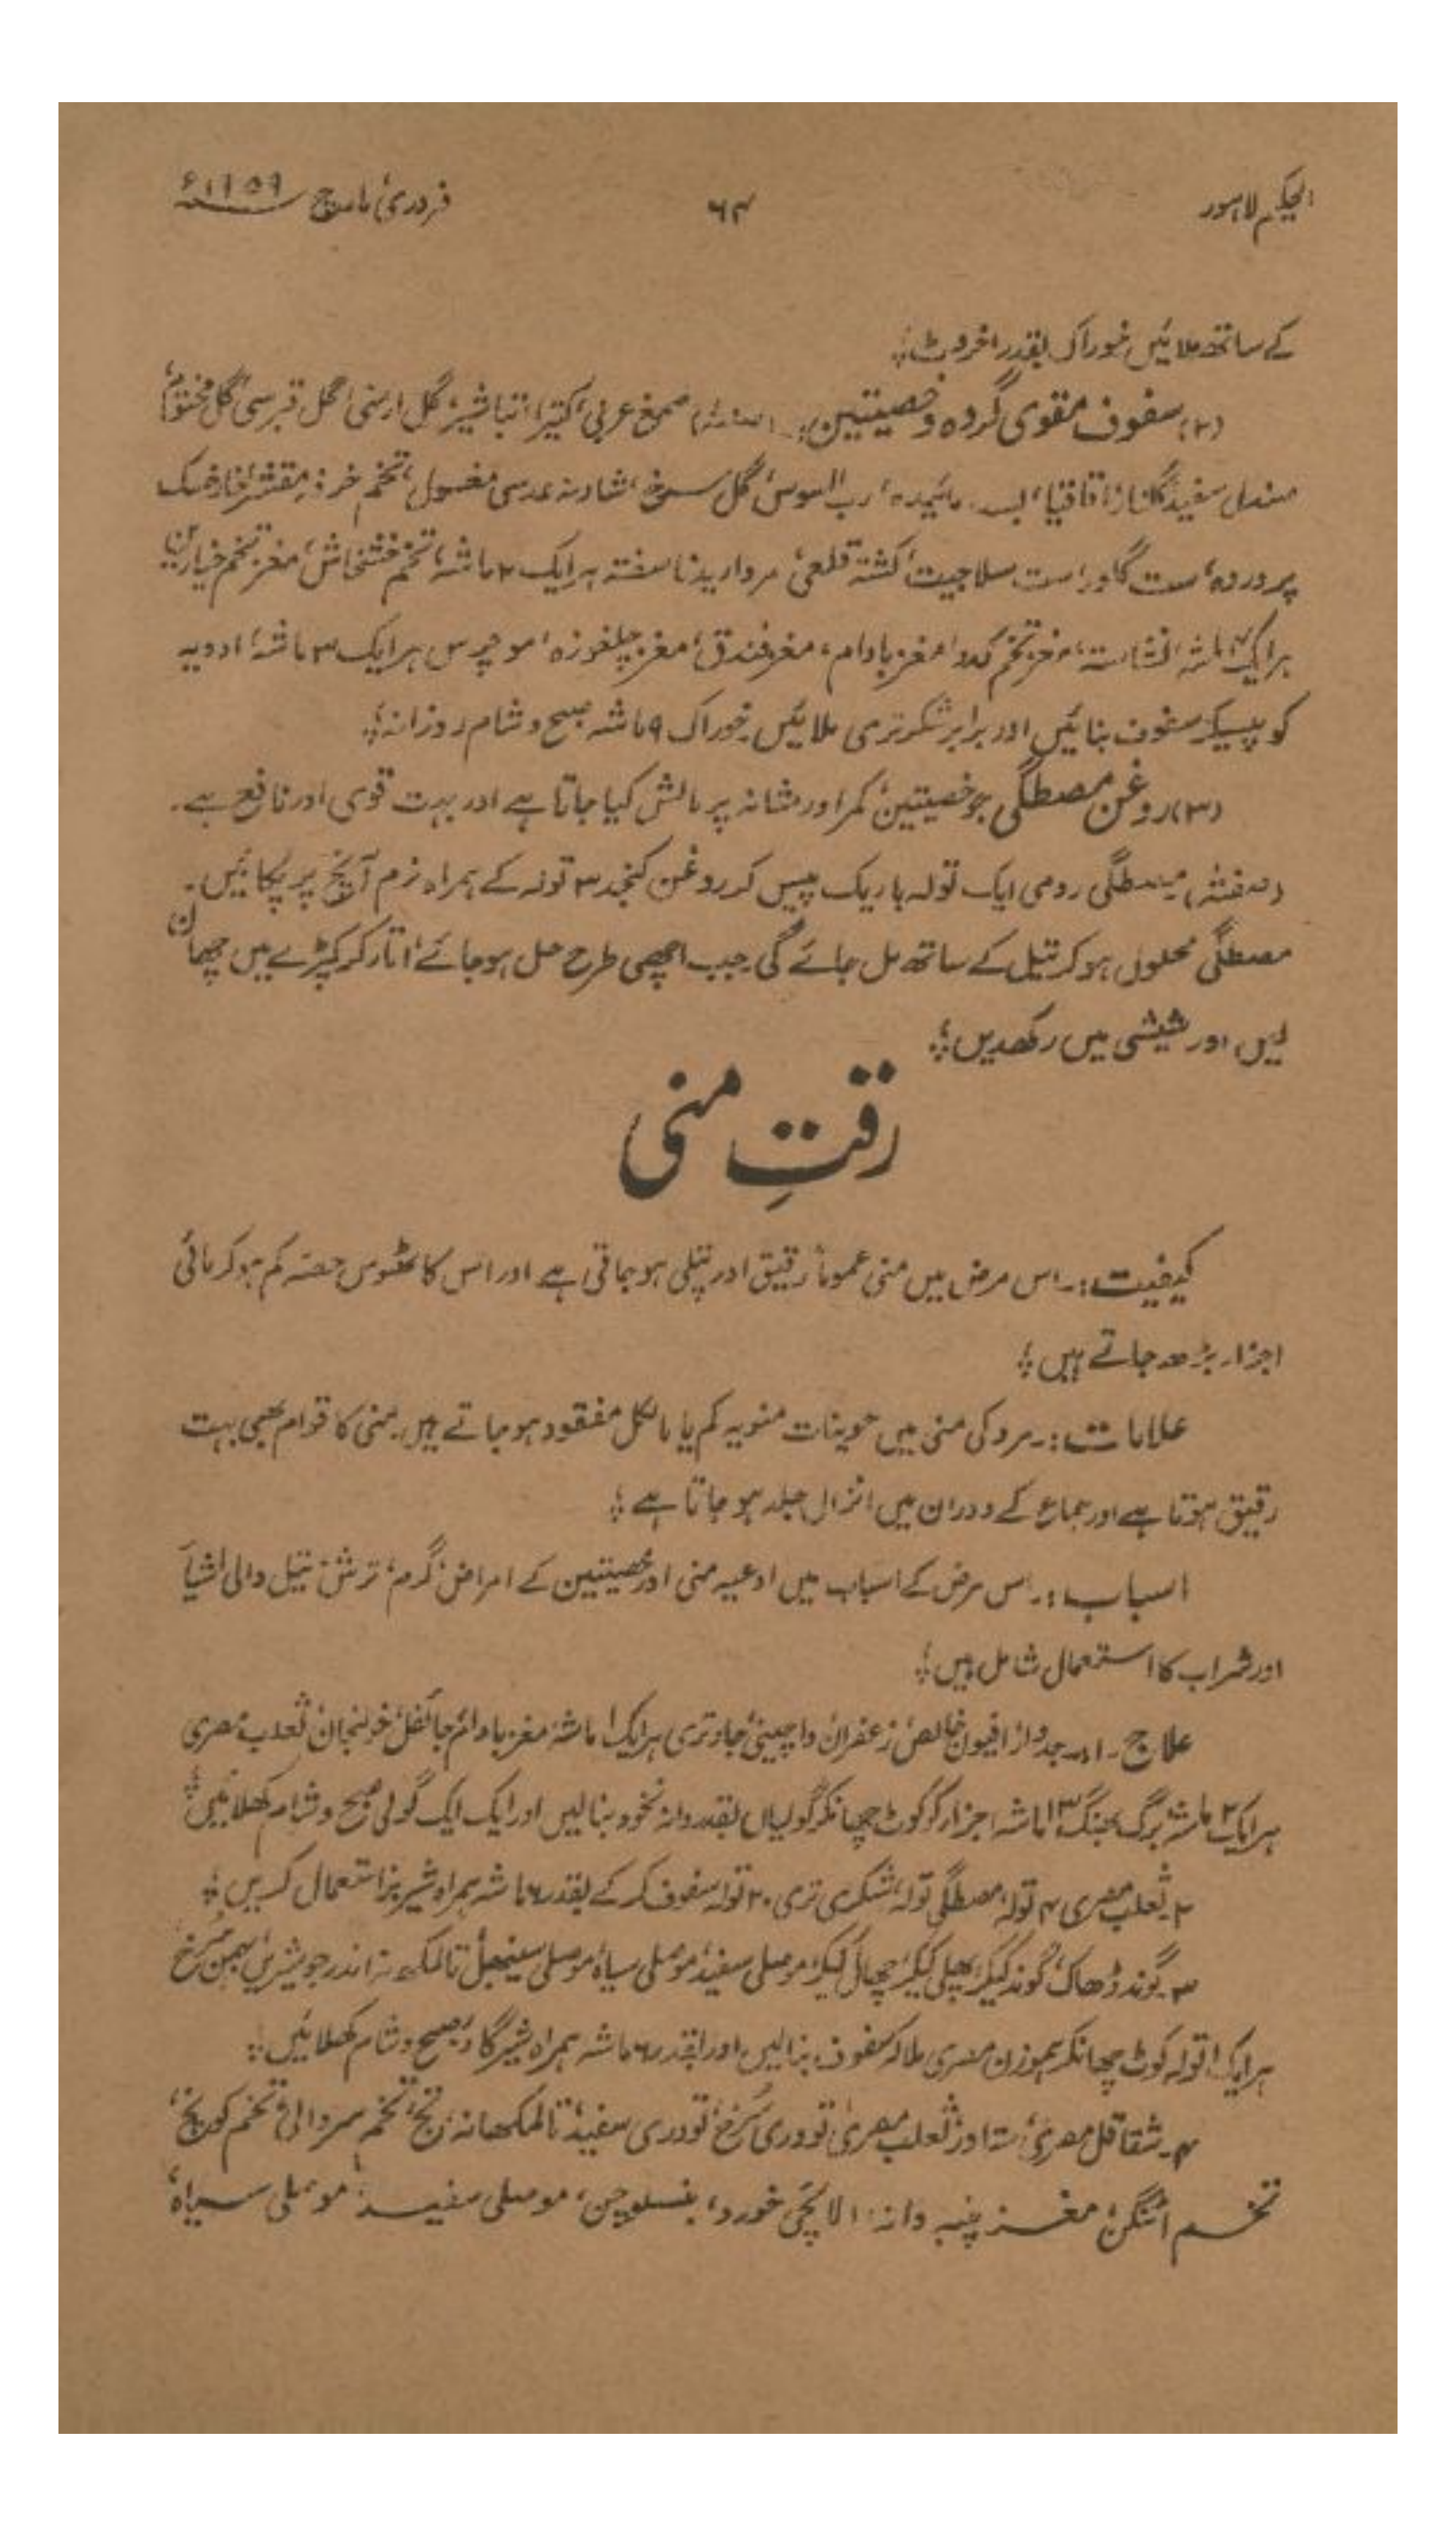 الحکیم لاہور ۶۴ فروری، مارچ ۱۹۵۹ء
کے ساتھ ملائیں خوراک بقدر اخروٹ؛
(۲) سفوف مقوی گردہ و خصیتین:۔ (صنفتہ) صمغ عربی، کتیرا، تباشیر، گل ارمنی، گل قبرسی، گل مختوم،
صندل سفید، گلنار، اقاقیا، بسد سائیدہ، رب السوس، گل سرخ، شادنہ عدسی مغسول، تخم خرفہ مقشر، خارخسک
پروردہ، ست گلو، ست سلاجیت، کشتہ قلعی، مروارید ناسفتہ ہر ایک ۲ ماشہ، تخم خشخاش، مغز تخم خیارین
ہر ایک ۷ ماشہ، نشاستہ، مغز تخم کدو، مغز بادام، مغز فندق، مغز چلغوزہ، موچرس ہر ایک ۳ ماشہ، ادویہ
کو پیسکر سفوف بنائیں اور برابر شکر تری ملائیں خوراک ۹ ماشہ صبح و شام روزانہ؛
(۳) روغن مصطگی جو خصیتین، کمر اور مثانہ پر مالش کیا جاتا ہے اور بہت قوی اور نافع ہے۔
(صنفتہ) مصطگی رومی ایک تولہ باریک پیس کر روغن کنجد ۳ تولہ کے ہمراہ نرم آنچ پر پکائیں۔
مصطگی محلول ہوکر تیل کے ساتھ مل جائے گی جب اچھی طرح حل ہوجائے اتار کر کپڑے میں چھان
لیں اور شیشی میں رکھدیں؛
رقتِ منی
کیفیت:۔ اس مرض میں منی عموماً رقیق اور پتلی ہو جاتی ہے اور اس کا ٹھوس حصہ کم ہوکر مائی
اجزاء بڑھ جاتے ہیں؛
علامات:۔ مرد کی منی میں حوینات منویہ کم یا بالکل مفقود ہو جاتے ہیں۔ منی کا قوام بھی بہت
رقیق ہوتا ہے اور جماع کے دوران میں انزال جلد ہو جاتا ہے؛
اسباب:۔ اس مرض کے اسباب میں اوعیہ منی اور خصیتین کے امراض، گرم، ترش، تیل والی اشیا
اور شراب کا استعمال شامل ہیں؛
علاج۔ ۱۔ جدوار، افیون خالص، زعفران، داچینی، جاوتری ہر ایک ۱ ماشہ، مغز بادام، جائفل، خولنجان، ثعلب مصری
ہر ایک ۲ ماشہ، برگ بھنگ ۱۳ ماشہ اجزاء کو کوٹ چھانکر گولیاں بقدر دانہ نخود بنالیں اور ایک ایک گولی صبح و شام کھلائیں؛
۲۔ ثعلب مصری ۴ تولہ، مصطگی تولہ، شکری تری ۲۰ تولہ سفوف کر کے بقدر ۶ ماشہ ہمراہ شیر بز استعمال کریں؛
۳۔ گوند ڈھاک، گوند کیکر، پھلی کیکر، چھال کیکر، موصلی سفید، موصلی سیاہ، موصلی سینبھل، تالمکھانہ، اندر جو شیریں، بہمن سرخ
ہر ایک ۱ تولہ کوٹ چھانکر ہموزن مصری ملا کر سفوف بنالیں اور بقدر ۶ ماشہ ہمراہ شیر گاؤ صبح و شام کھلائیں؛
۴۔ شقاقل مصری، ستاور، ثعلب مصری، تودری سرخ، تودری سفید، تالمکھانہ، تج، تخم سروالی، تخم کونچ،
تخم اٹنگن، مغز پنبہ دانہ، الائچی خورد، بنسلوچن، موصلی سفید، موصلی سیاہ،